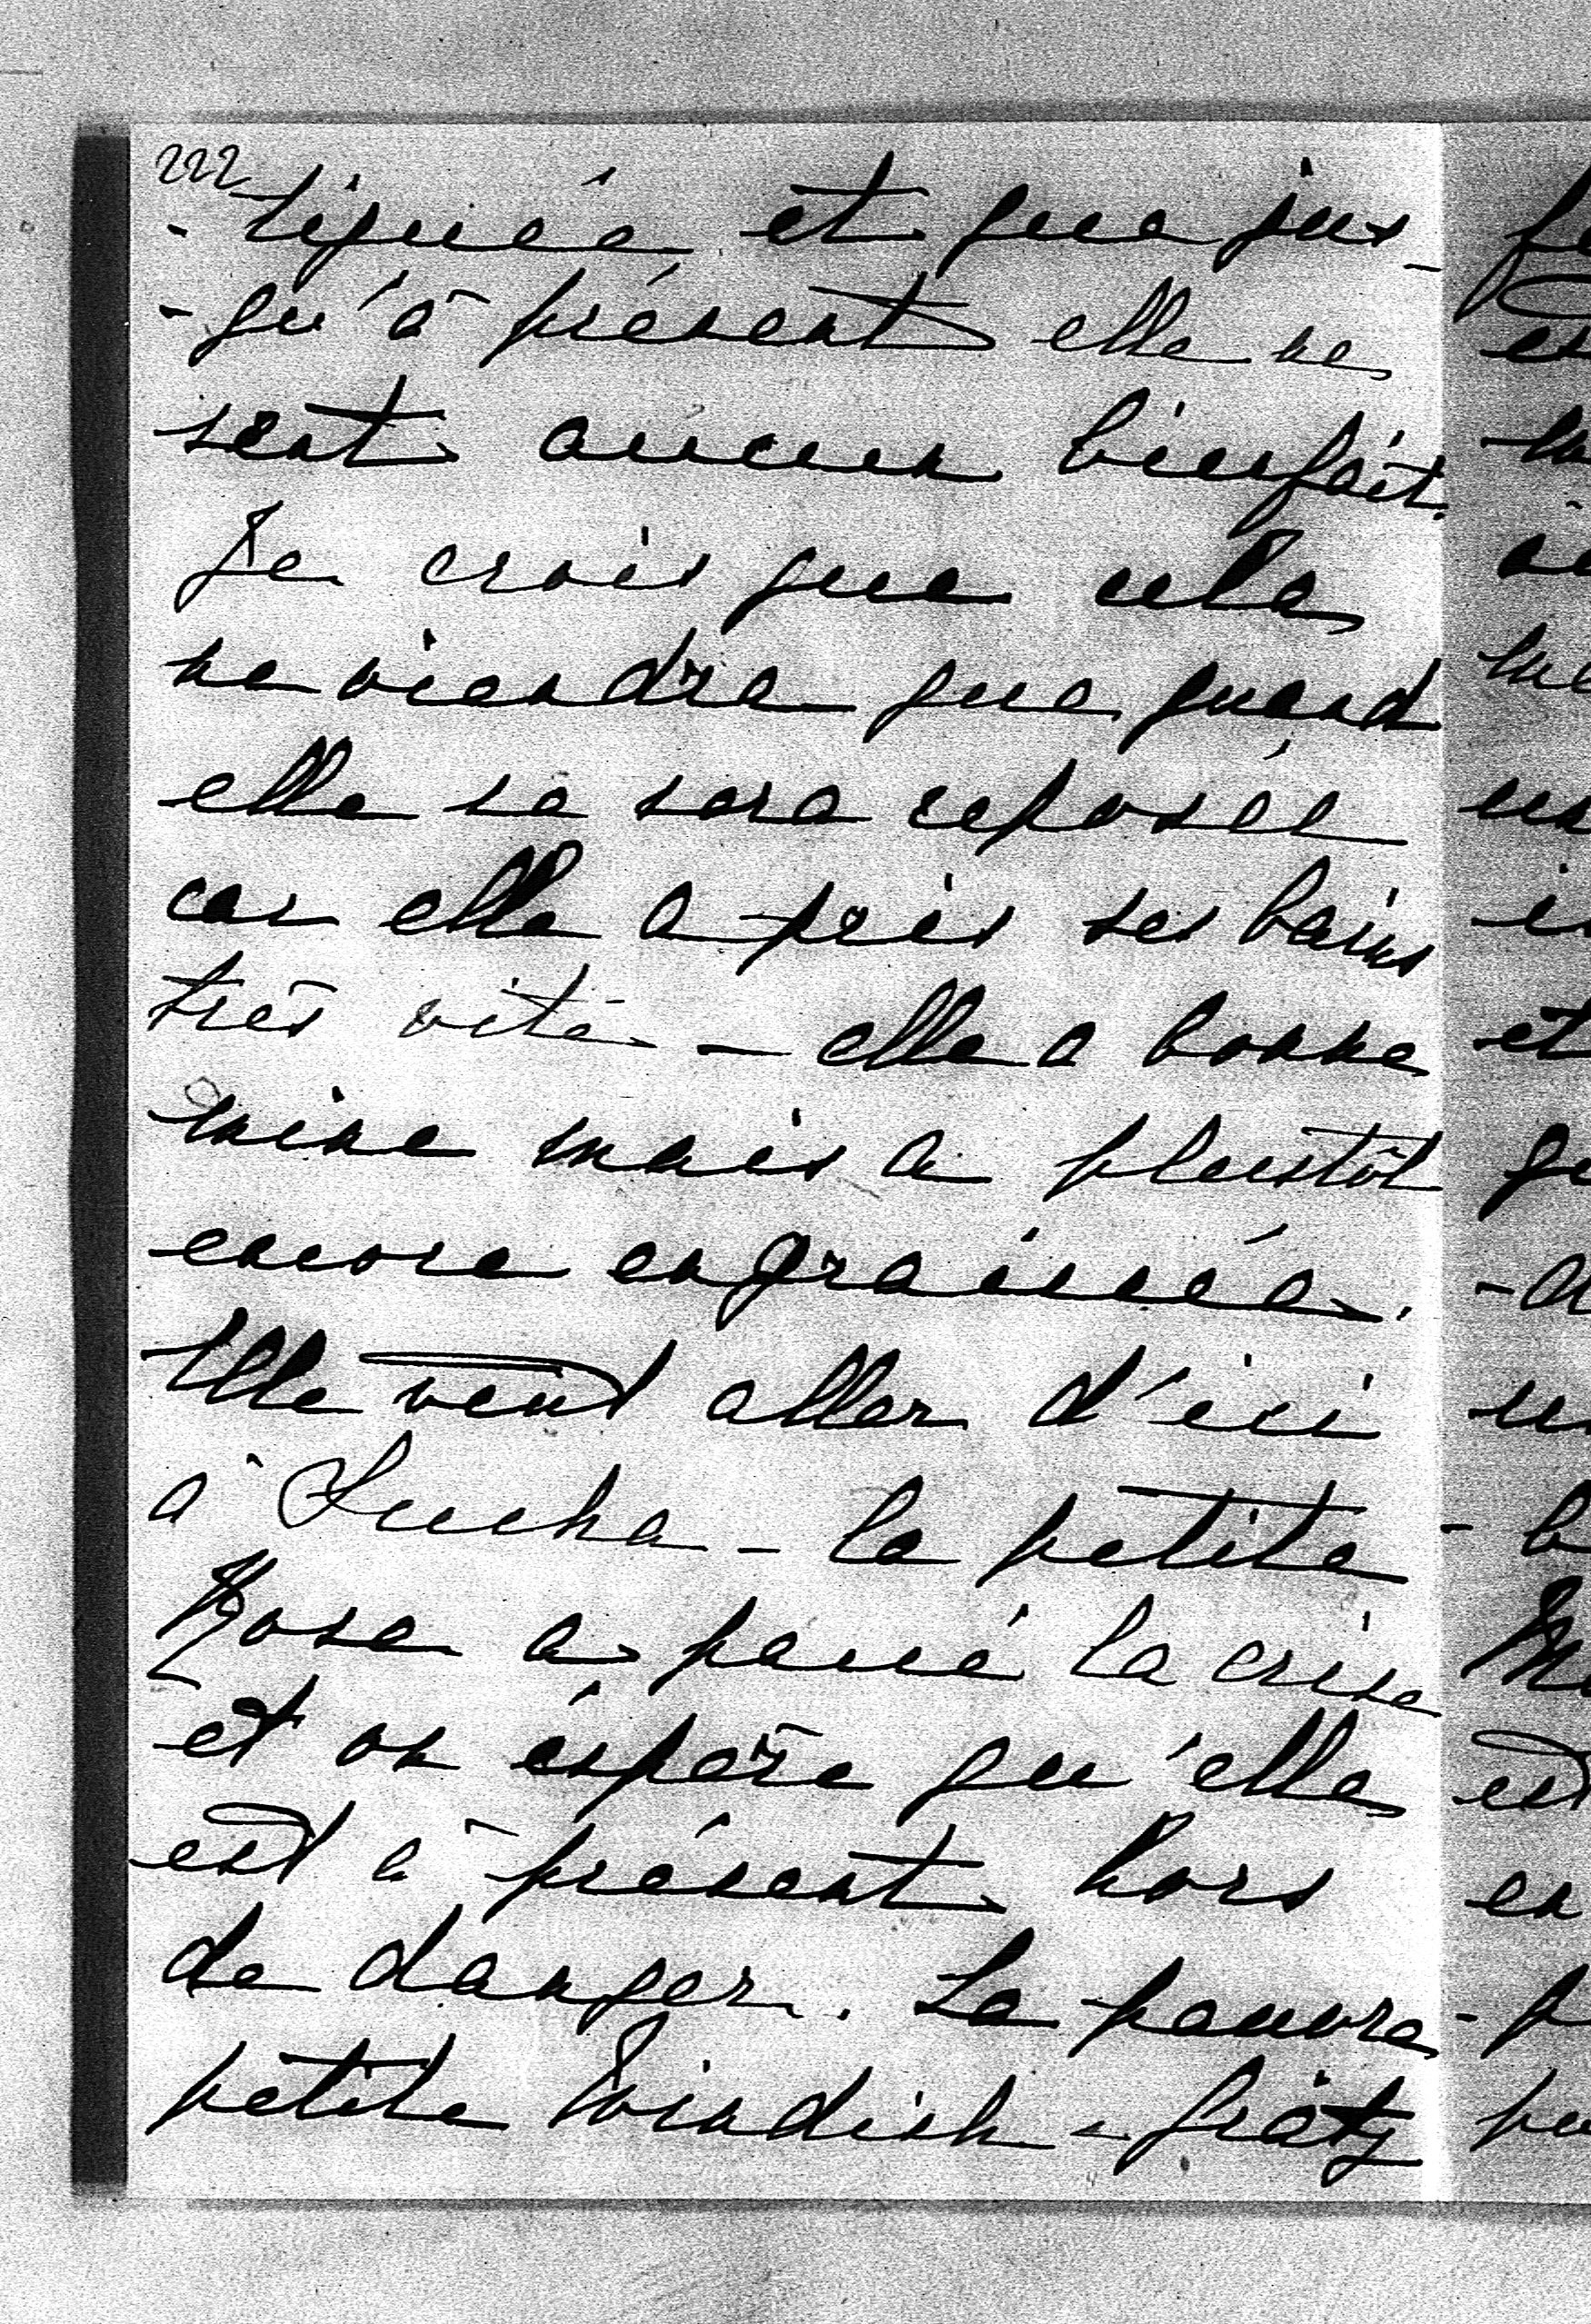 222
-tiguée et que jus-
-qu'à présent elle ne
sent aucun bienfait.
Je crois que cela
ne viendra que quand
elle se sera reposée
car elle a pris ses bains
très vite - elle a bonne
mine mais a plustôt
encore engraissée.
Elle veut aller d'ici
à Lucka - la petite
Rosa a passé la crise
et on éspère qu'elle
est à présent hors
de danger. La pauvre
petite Windish-grätz